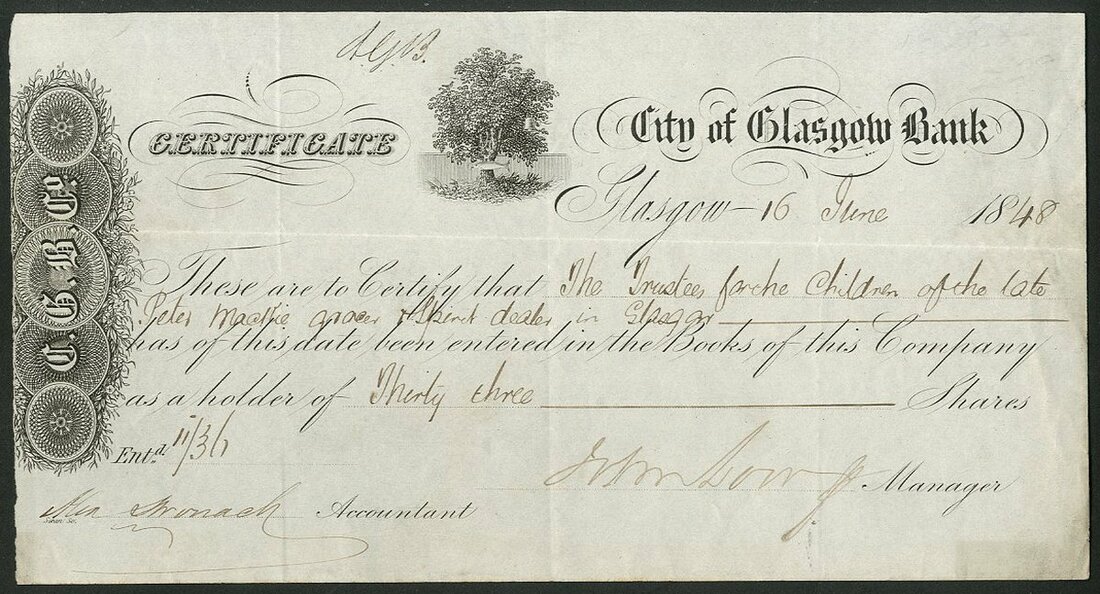 CERTIFICATE
City of Glasgow Bank
Glasgow 16 June 1848
C. G. B. Co.
These are to Certify that The Trustees for the Children of the late
Peter Mackie grocer & Spirit dealer in Glasgow
has of this date been entered in the Books of this Company
as a holder of Thirty three Shares
Entd. 11/361
Manager
Accountant